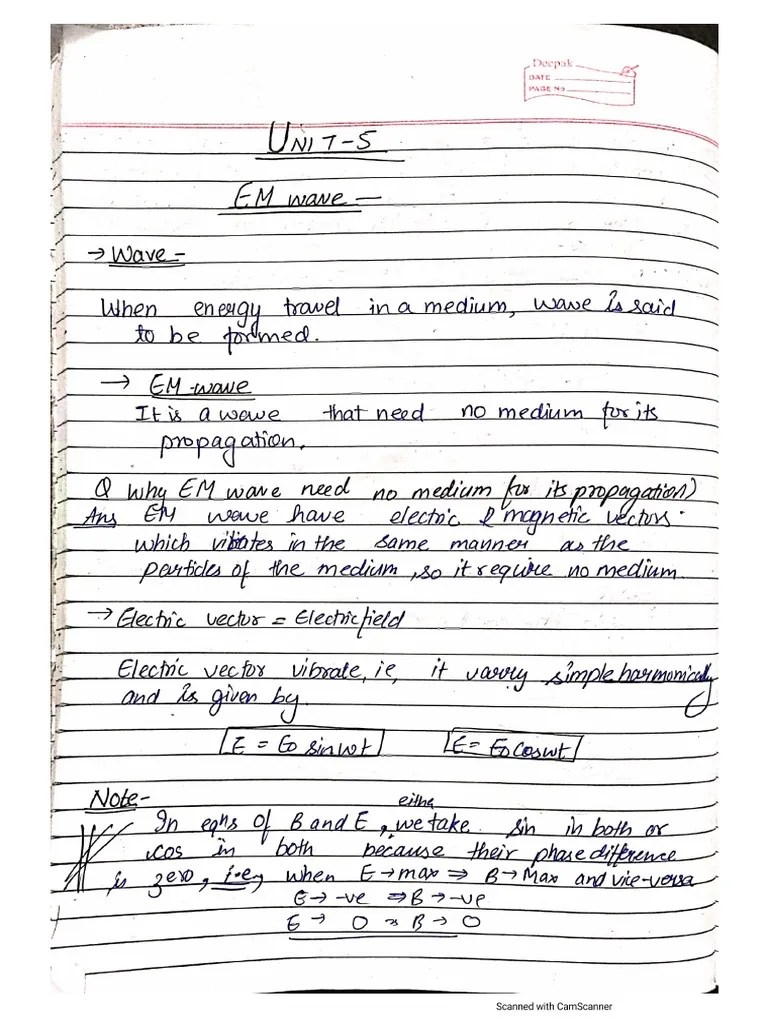 Deepak
DATE
PAGE NO
UNIT-5
EM wave —
→ Wave -
When energy travel in a medium, wave is said
to be formed.
→ EM-wave
It is a wave that need no medium for its
propagation.
Q why EM wave need no medium (for its propagation)
Ans EM wave have electric & magnetic vectors.
which vibrates in the same manner as the
particles of the medium, so it require no medium.
→ Electric vector = Electric field
Electric vector vibrate, ie, it varry simple harmonically
and is given by
E = E0 sin wt E = E0 cos wt
Note-
eithe
In eqns of B and E, we take sin in both or
cos in both because their phase difference
is zero, i.e, when E → max ⇒ B → Max and vice-versa
E → -ve ⇒ B → -ve
E → 0 ⇒ B → 0
Scanned with CamScanner